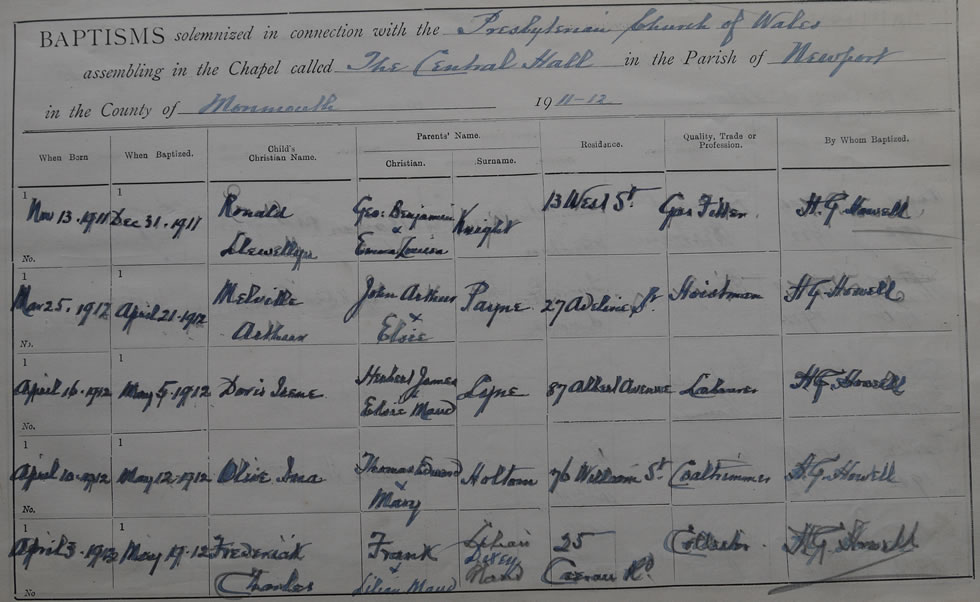 BAPTISMS solemnized in connection with the Presbyterian Church of Wales
assembling in the Chapel called The Central Hall in the Parish of Newport
in the County of Monmouth 1911-12
When Born When Baptized. Child's Christian Name. Parents' Name. Christian. Surname. Residence. Quality, Trade or Profession. By Whom Baptized.
1 1
Nov 13. 1911 Dec 31. 1911 Ronald Llewellyn Geo: Benjamin & Emma Louisa Knight 13 West St. Gas Fitter. H. G. Howell
No.
1 1
Mar 25. 1912 April 21. 1912 Melville Arthur John Arthur & Elsie Payne 27 Adeline St. Hoistman H G Howell
No.
1 1
April 16. 1912 May 5. 1912 Doris Irene Herbert James & Elsie Maud Lyne 87 Albert Avenue Labourer H G Howell
No.
1 1
April 10. 1912 May 12. 1912 Olive Ina Thomas Edward & Mary Holtom 76 William St. Coaltrimmer H. G. Howell
No.
1 1
April 3. 1912 May 19. 12 Frederick Charles Frank & Lilian Maud 25 Caerau Rd. Collector. H G Howell
No